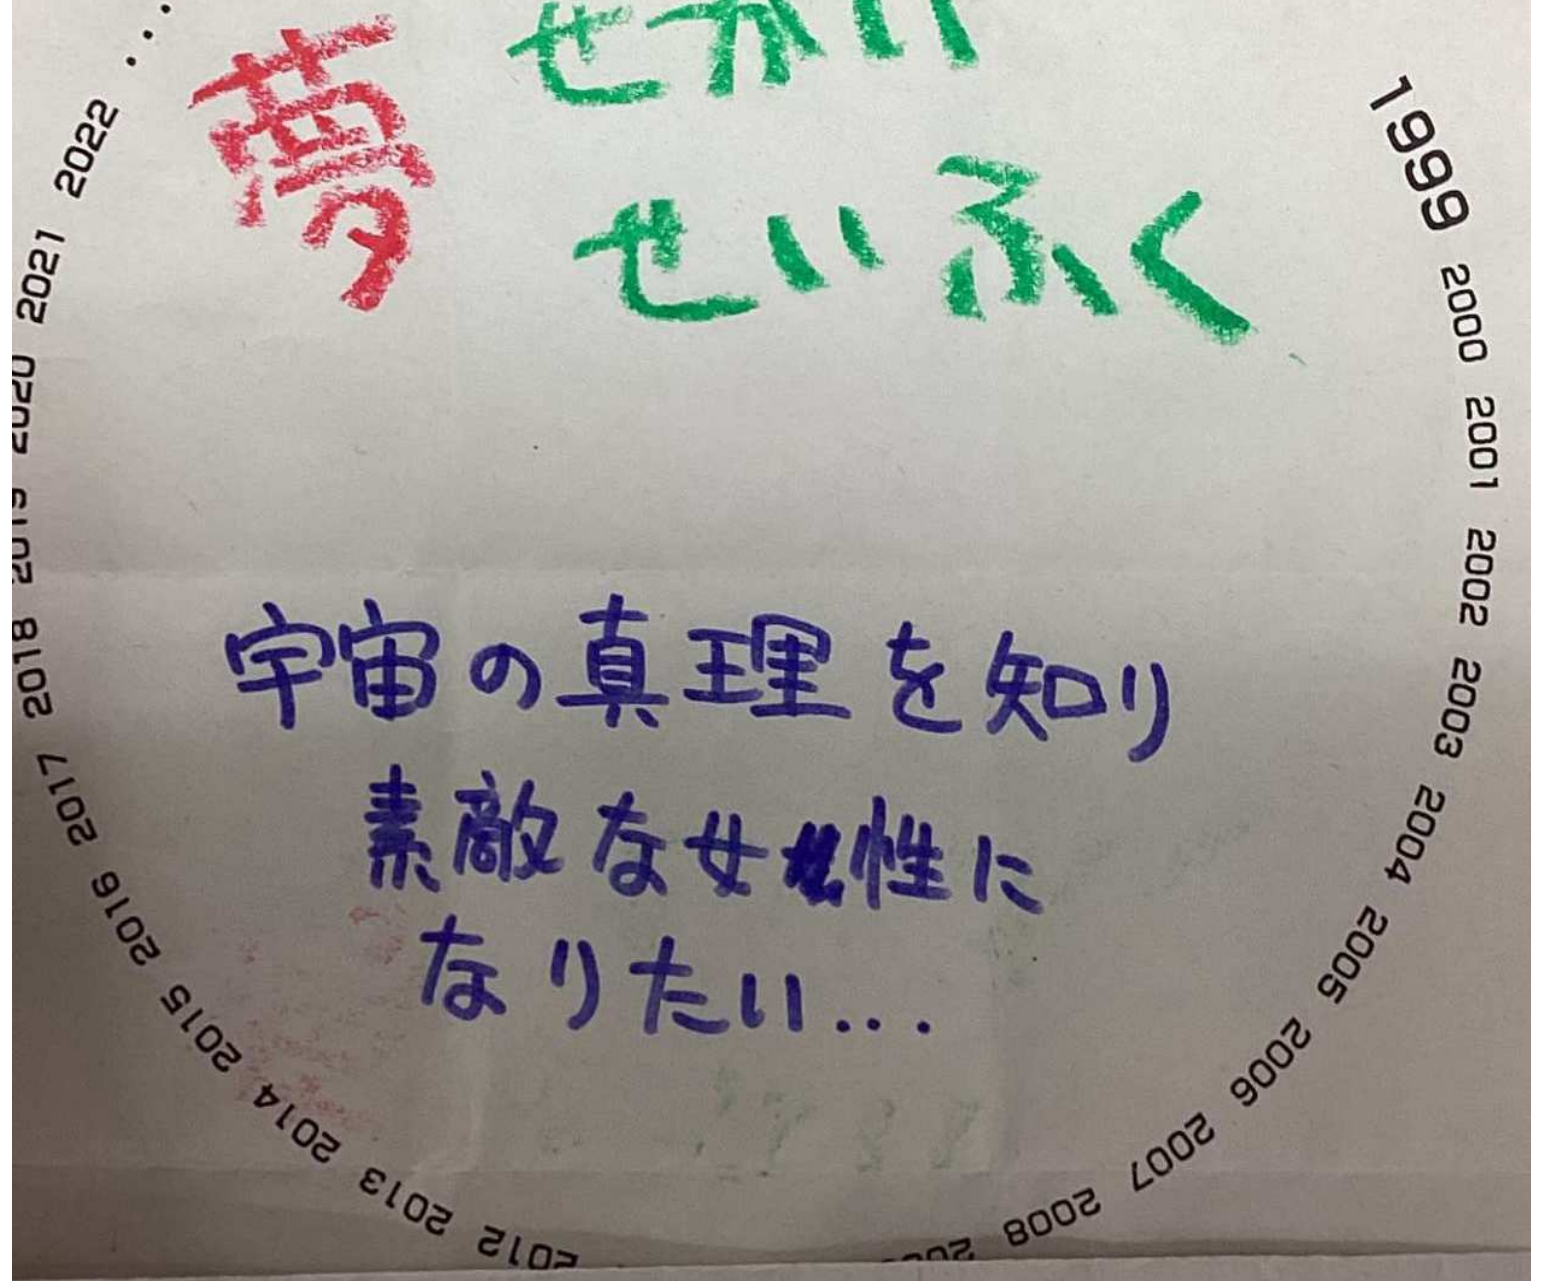 夢
せかい
せいふく
宇宙の真理を知り
素敵な女性に
なりたい...
1999 2000 2001 2002 2003 2004 2005 2006 2007 2008
2012 2013 2014 2015 2016 2017 2018 2019 2020 2021 2022 ...